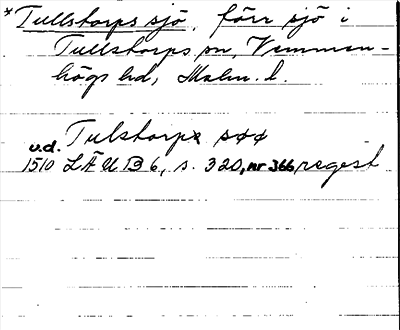 *Tullstorps sjö, förr sjö i
Tullstorps sn, Vemmen-
högs hd, Malm. l.
u.d. Tulstorps søø
1510 LÄUB 6, s. 320, nr 366 regest